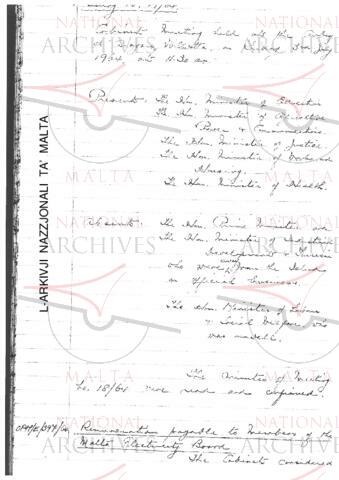 Cabinet Meeting held at the Auberge
1964 at 11.30 am.
Present: The Hon. Minister of Education
The Hon. Minister of
Power & Communications.
The Hon. Minister of Justice.
The Hon. Minister of Works and
Housing.
The Hon. Minister of Health.
Absent: The Hon. Prime Minister and
The Hon. Minister of Industrial
Development & Tourism
who were away from the Island
on official business.
The Hon. Minister of Labour
& Social Welfare who
was unwell.
The Minutes of Meeting
No. 18/64 were read and confirmed.
Remuneration payable to Members of the
Malta Electricity Board
The Cabinet considered
L-ARKIVJI NAZZJONALI TA' MALTA
NATIONAL
ARCHIVES
MALTA